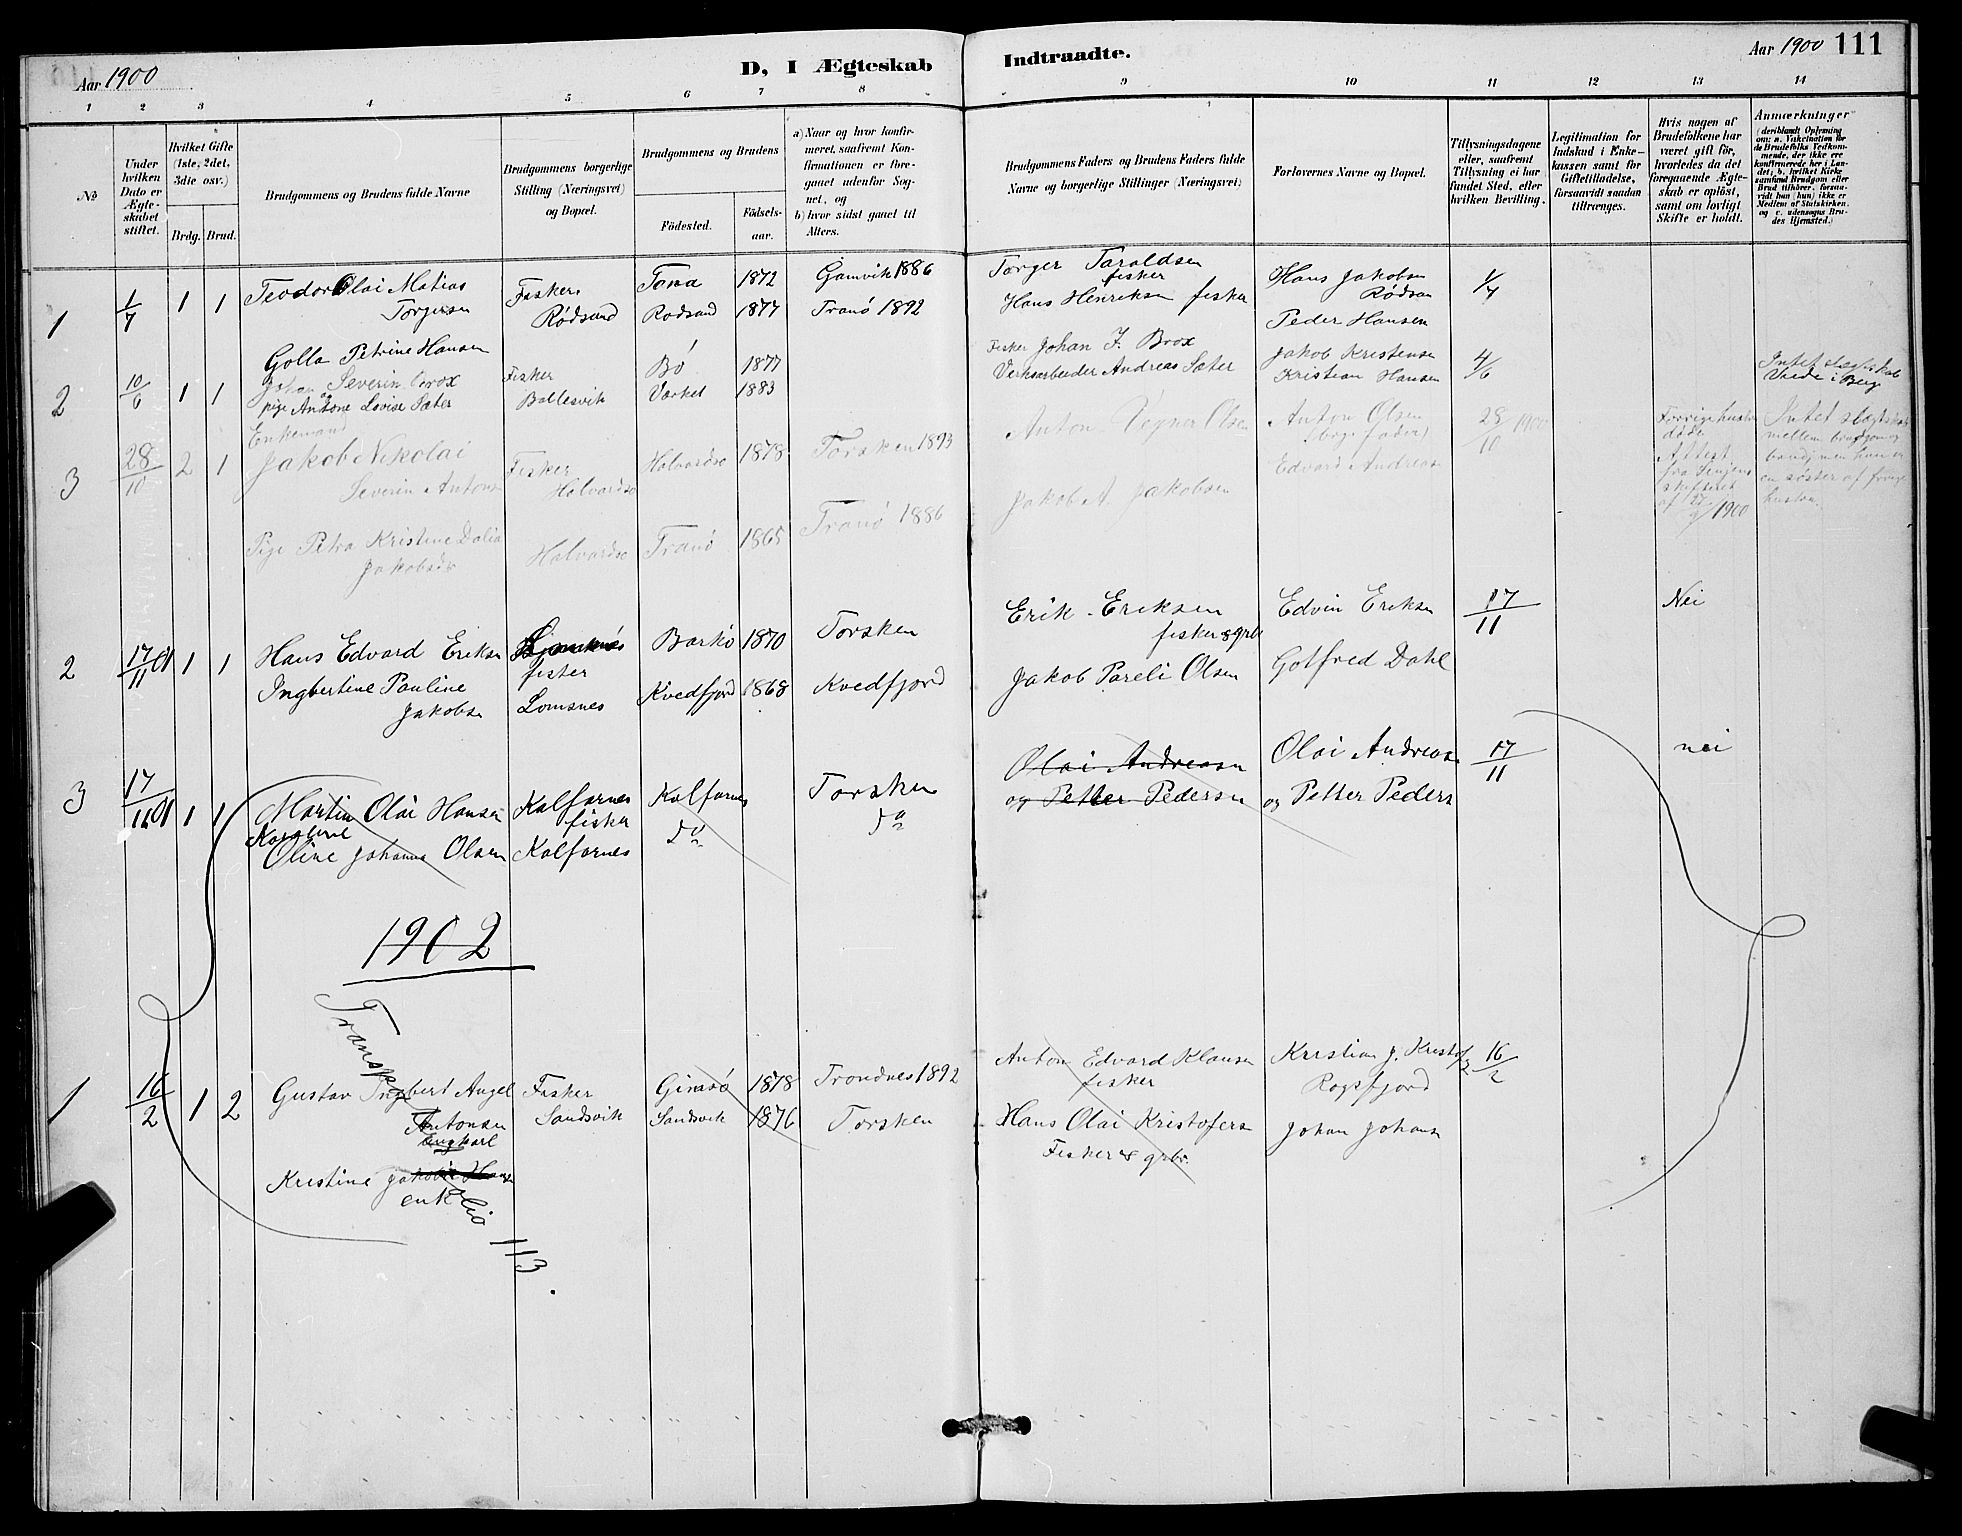 Aar 1900
D, I Ægteskab Indtraadte.
Aar 1900 111
1 2 3 4 5 6 7 8 9 10 11 12 13 14
No
Under hvilken Dato er Ægteskabet stiftet.
Hvilket Gifte (1ste, 2det, 3die osv.)
Brdg. Brud.
Brudgommens og Brudens fulde Navne
Brudgommens borgerlige Stilling (Næringsvei) og Bopæl.
Brudgommens og Brudens
Födested.
Födselsaar.
a) Naar og hvor konfirmeret, saafremt Konfirmationen er foregaaet udenfor Sognet, og
b) hvor sidst gaaet til Alters.
Brudgommens Faders og Brudens Faders fulde Navne og borgerlige Stillinger (Næringsvei)
Forlovernes Navne og Bopæl.
Tillysningsdagene eller, saafremt Tillysning ei har fundet Sted, efter hvilken Bevilling.
Legitimation for Indskud i Enkekassen samt for Giftetilladelse, forsaavidt saadan tiltrænges.
Hvis nogen af Brudefolkene har været gift för, hvorledes da det foregaaende Ægteskab er oplöst, samt om lovligt Skifte er holdt.
Anmærkninger (deriblandt Oplysning om: a. Vakcination for de Brudefolks Vedkommende, der ikke ere konfirmerede her i Landet; b. hvilket Kirkesamfund Brudgom eller Brud tilhörer, forsaavidt han (hun) ikke er Medlem af Statskirken, og c. udensogns Brudes Hjemsted.)
1 1/7 1 1 Teodor Olai Matias Fisker Tona 1872 Gamvik 1886 Torger Taraldsen Hans Jakobsen 1/7
Torgersen Rödsand Rodsand 1877 Tranö 1892 fisker Rödsan
Hans Henriksen fisker Peder Hansen
Golla Petrine Hansen
2 10/6 1 1 Johan Severin Brox Fisker Bö 1877 Fisker Johan J. Brox Jakob Kristensen 4/6
og
pige Antone Lovise Sæter Ballesvik Varket 1883 Verksarbeider Andreas Sæter Kristian Hansen
Intet slegtskab
Viede i Berg
Enkemand
3 28/10 2 1 Jakob Nikolai Fisker Halvardsö 1878 Torsken 1893 Anton Vegner Olsen Anton Olsen 28/10 1900
Severin Antons Halvardsö (brg. fader)
Edvard Andreas
Forrige hustru döde
Attest fra Senjens skifteret af 27/9 1900
Intet slegtskab mellem brudgom og brud; men hun er en söster af forrige hustru.
Pige Petra Kristine Dalia Halvardsö Tranö 1865 Tranö 1886 Jakob A. Jakobsen
Jakobsdr
2 17/11 01 1 1 Hans Edvard Eriksn fisker Barkö 1870 Torsken Erik Eriksen Edvin Eriksn 17/11 Nei
fisker & grbr
Ingbertine Pauline Lomsnes Kvedfjord 1868 Kvedfjord Jakob Pareli Olsen Gotfred Dahl
Jakobsn
3 17/11 01 1 1 Martin Olai Hansen Kalfarnes Kalfarnes Torsken Olai Andreasn Olai Andreasn 17/11 nei
fisker do do og Petter Pedersn og Petter Peders
Karoline
Oline Johanna Olsen Kalfarnes
1902
Transp
1 16/2 1 2 Gustav Ingbert Angel Fisker Gimsö 1878 Trondnes 1892 Anton Edvard Klausen Kristian J. Kristofs 16/2
Antonsen Sandsvik fisker Rogsfjord
ungkarl
Sandsvik 1876 Torsken Hans Olai Kristofersn Johan Johans
Fisker & grbr.
Kristine Jakobie Hansn
enke
113.